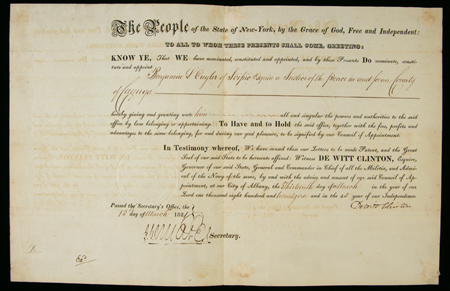 The People of the State of New-York, by the Grace of God, Free and Independent:
TO ALL TO WHOM THESE PRESENTS SHALL COME, GREETING:
KNOW YE, That WE have nominated, constituted and appointed, and by these Presents DO nominate, consti-
tute and appoint
of Scipio Esquire a Justice of the Peace in and for our County
of Cayuga
hereby giving and granting unto him all and singular the powers and authorities to the said
office by law belonging or appertaining: To Have and to Hold the said office, together with the fees, profits and
advantages to the same belonging, for and during our good pleasure, to be signified by our Council of Appointment.
In Testimony whereof, We have caused these our Letters to be made Patent, and the Great
Seal of our said State to be hereunto affixed: Witness DE WITT CLINTON, Esquire,
Governor of our said State, General and Commander in Chief of all the Militia, and Admi-
ral of the Navy of the same, by and with the advice and consent of our said Council of Ap-
pointment, at our City of Albany, the Thirteenth day of March in the year of our
Lord one thousand eight hundred and and in the year of our Independence
Passed the Secretary's Office, the
day of March
De Witt Clinton
Secretary.